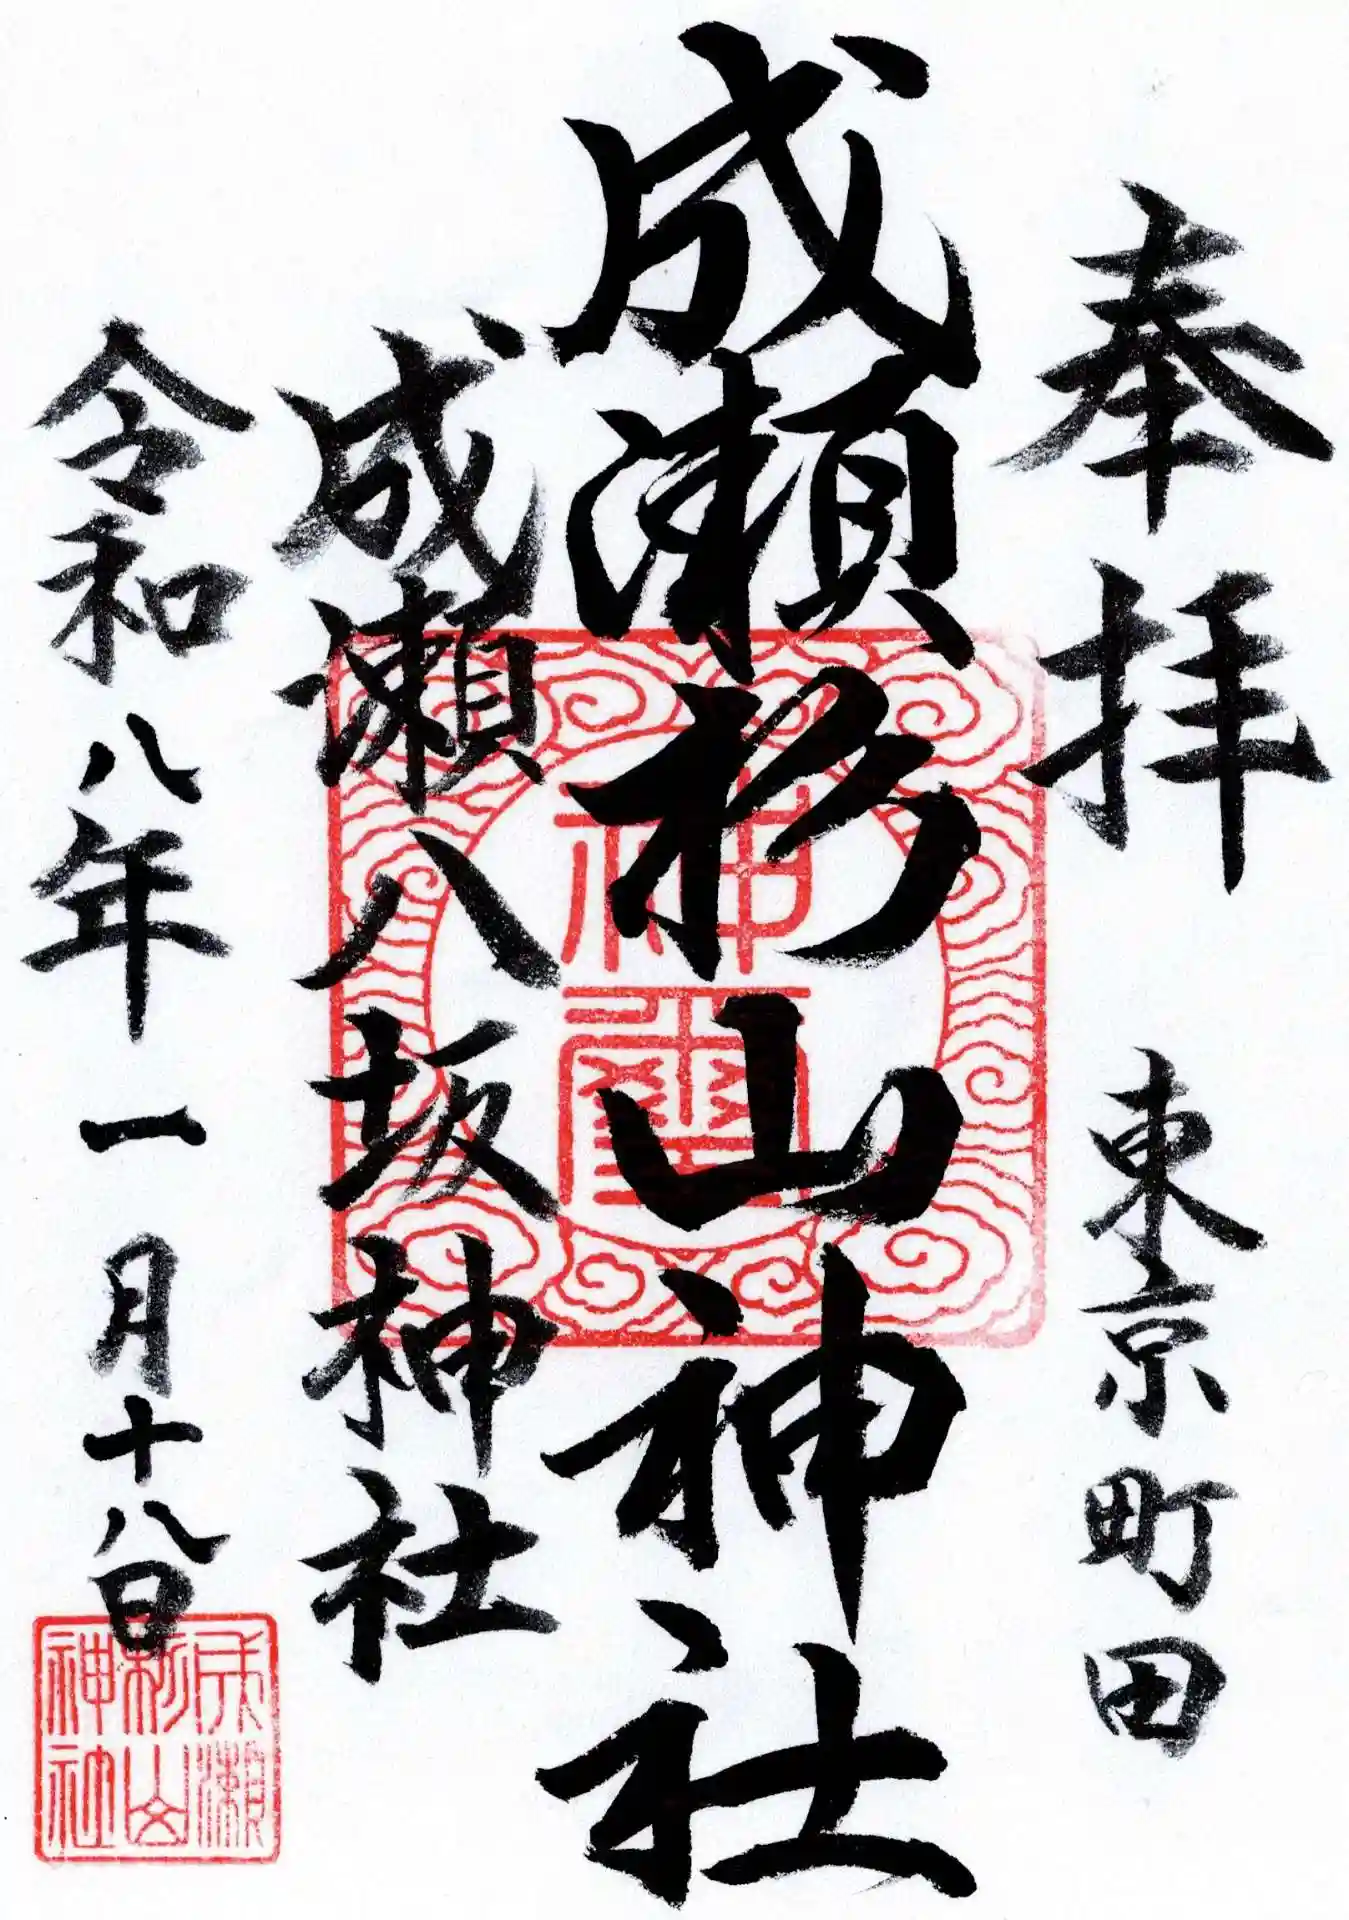 奉拝 東京町田
成瀬杉山神社
成瀬八坂神社
令和八年一月十八日
神璽
成瀬杉山神社